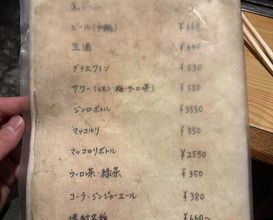 ビール(中瓶) ¥660
生酒 ¥640
グラスワイン ¥530
サワー(レモン・梅・ウーロ茶) ¥580
ジンロボトル ¥3550
マッコルリ ¥550
マッコルリボトル ¥2550
ウーロ茶・緑茶 ¥350
コーラ・ジンジャーエール ¥380
焼酎各種 ¥660〜